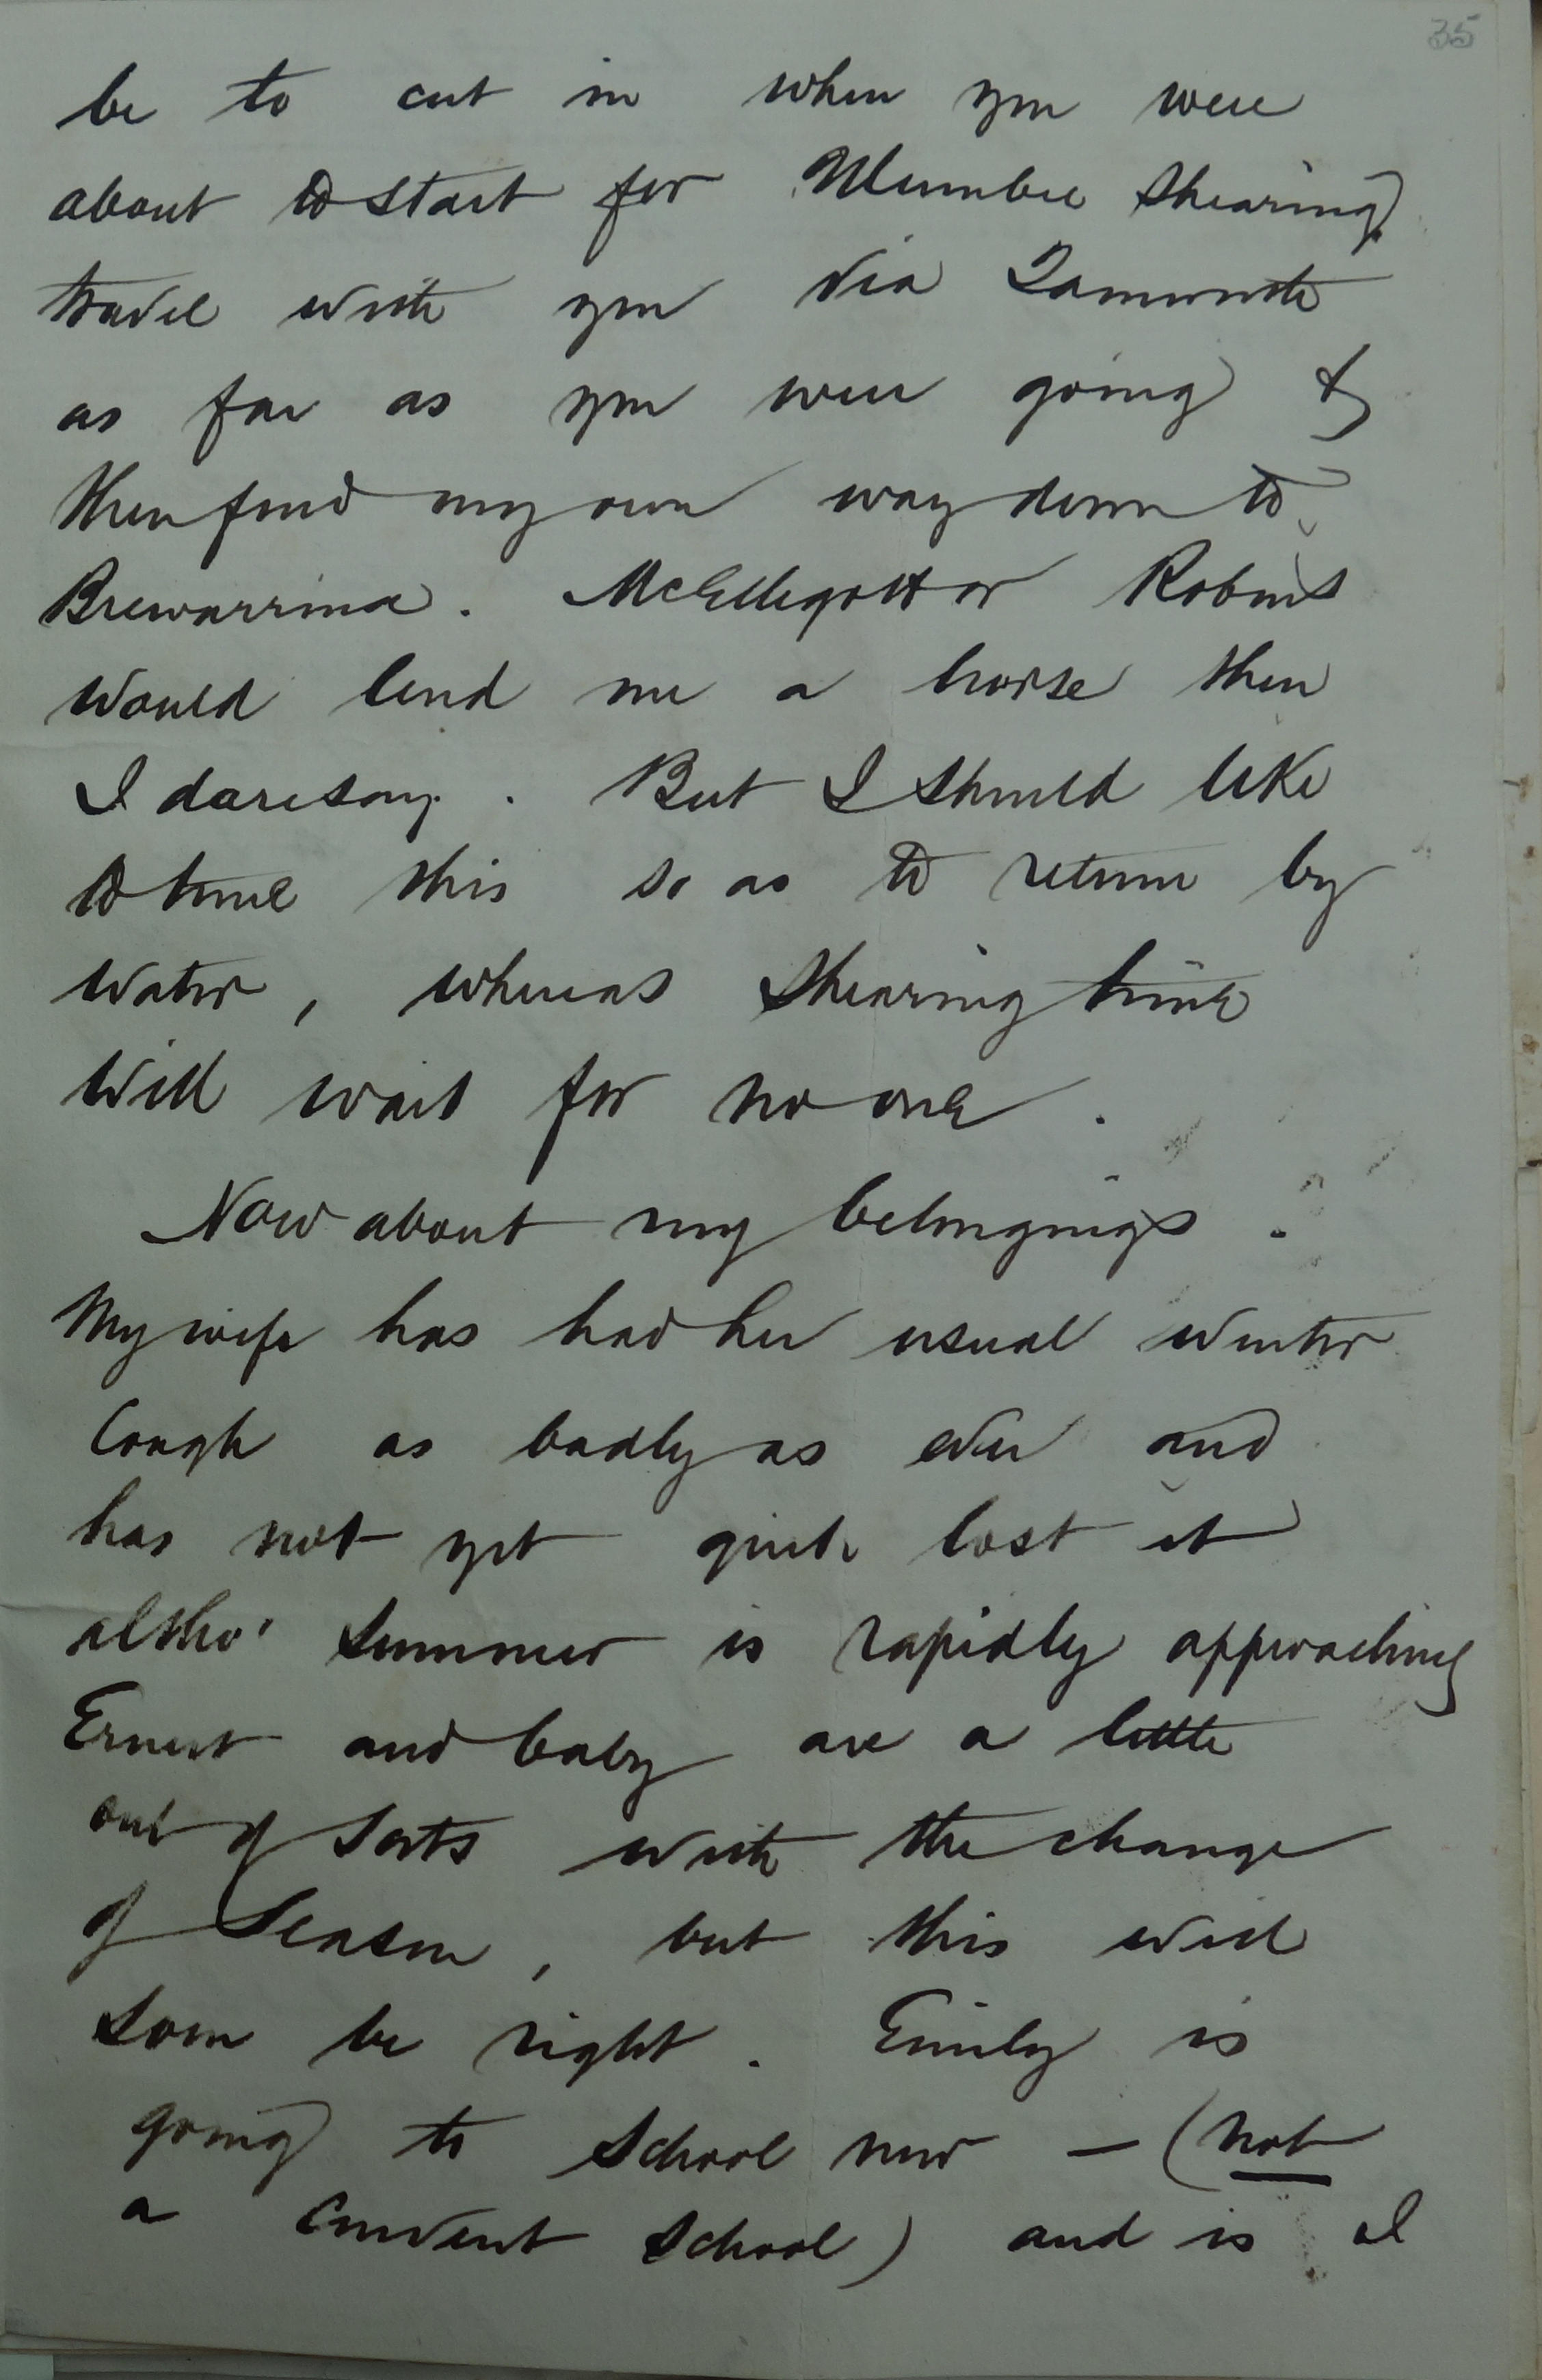 35
be to cut in when you were
about to start for Mumbee shearing,
travel with you via Tamworth
as far as you were going &
then find my own way down to
Brewarrina. McElligott or Roberts
would lend me a horse then
I daresay. But I should like
to time this so as to return by
water, whereas shearing time
will wait for no one.
Now about my belongings.
My wife has had her usual winter
cough as badly as ever and
has not yet quite lost it
altho' summer is rapidly approaching
Ernest and baby are a little
out of sorts with the change
of season, but this will
soon be right. Emily is
going to school now — (not
a convent school) and is I